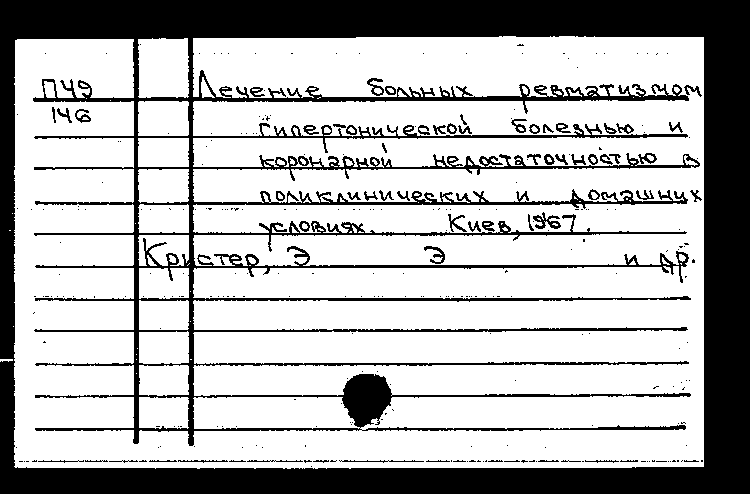 П49 Лечение больных ревматизмом
146 гипертонической болезнью и
коронарной недостаточностью в
поликлинических и домашних
условиях. Киев, 1967.
Кристер, Э Э и др.